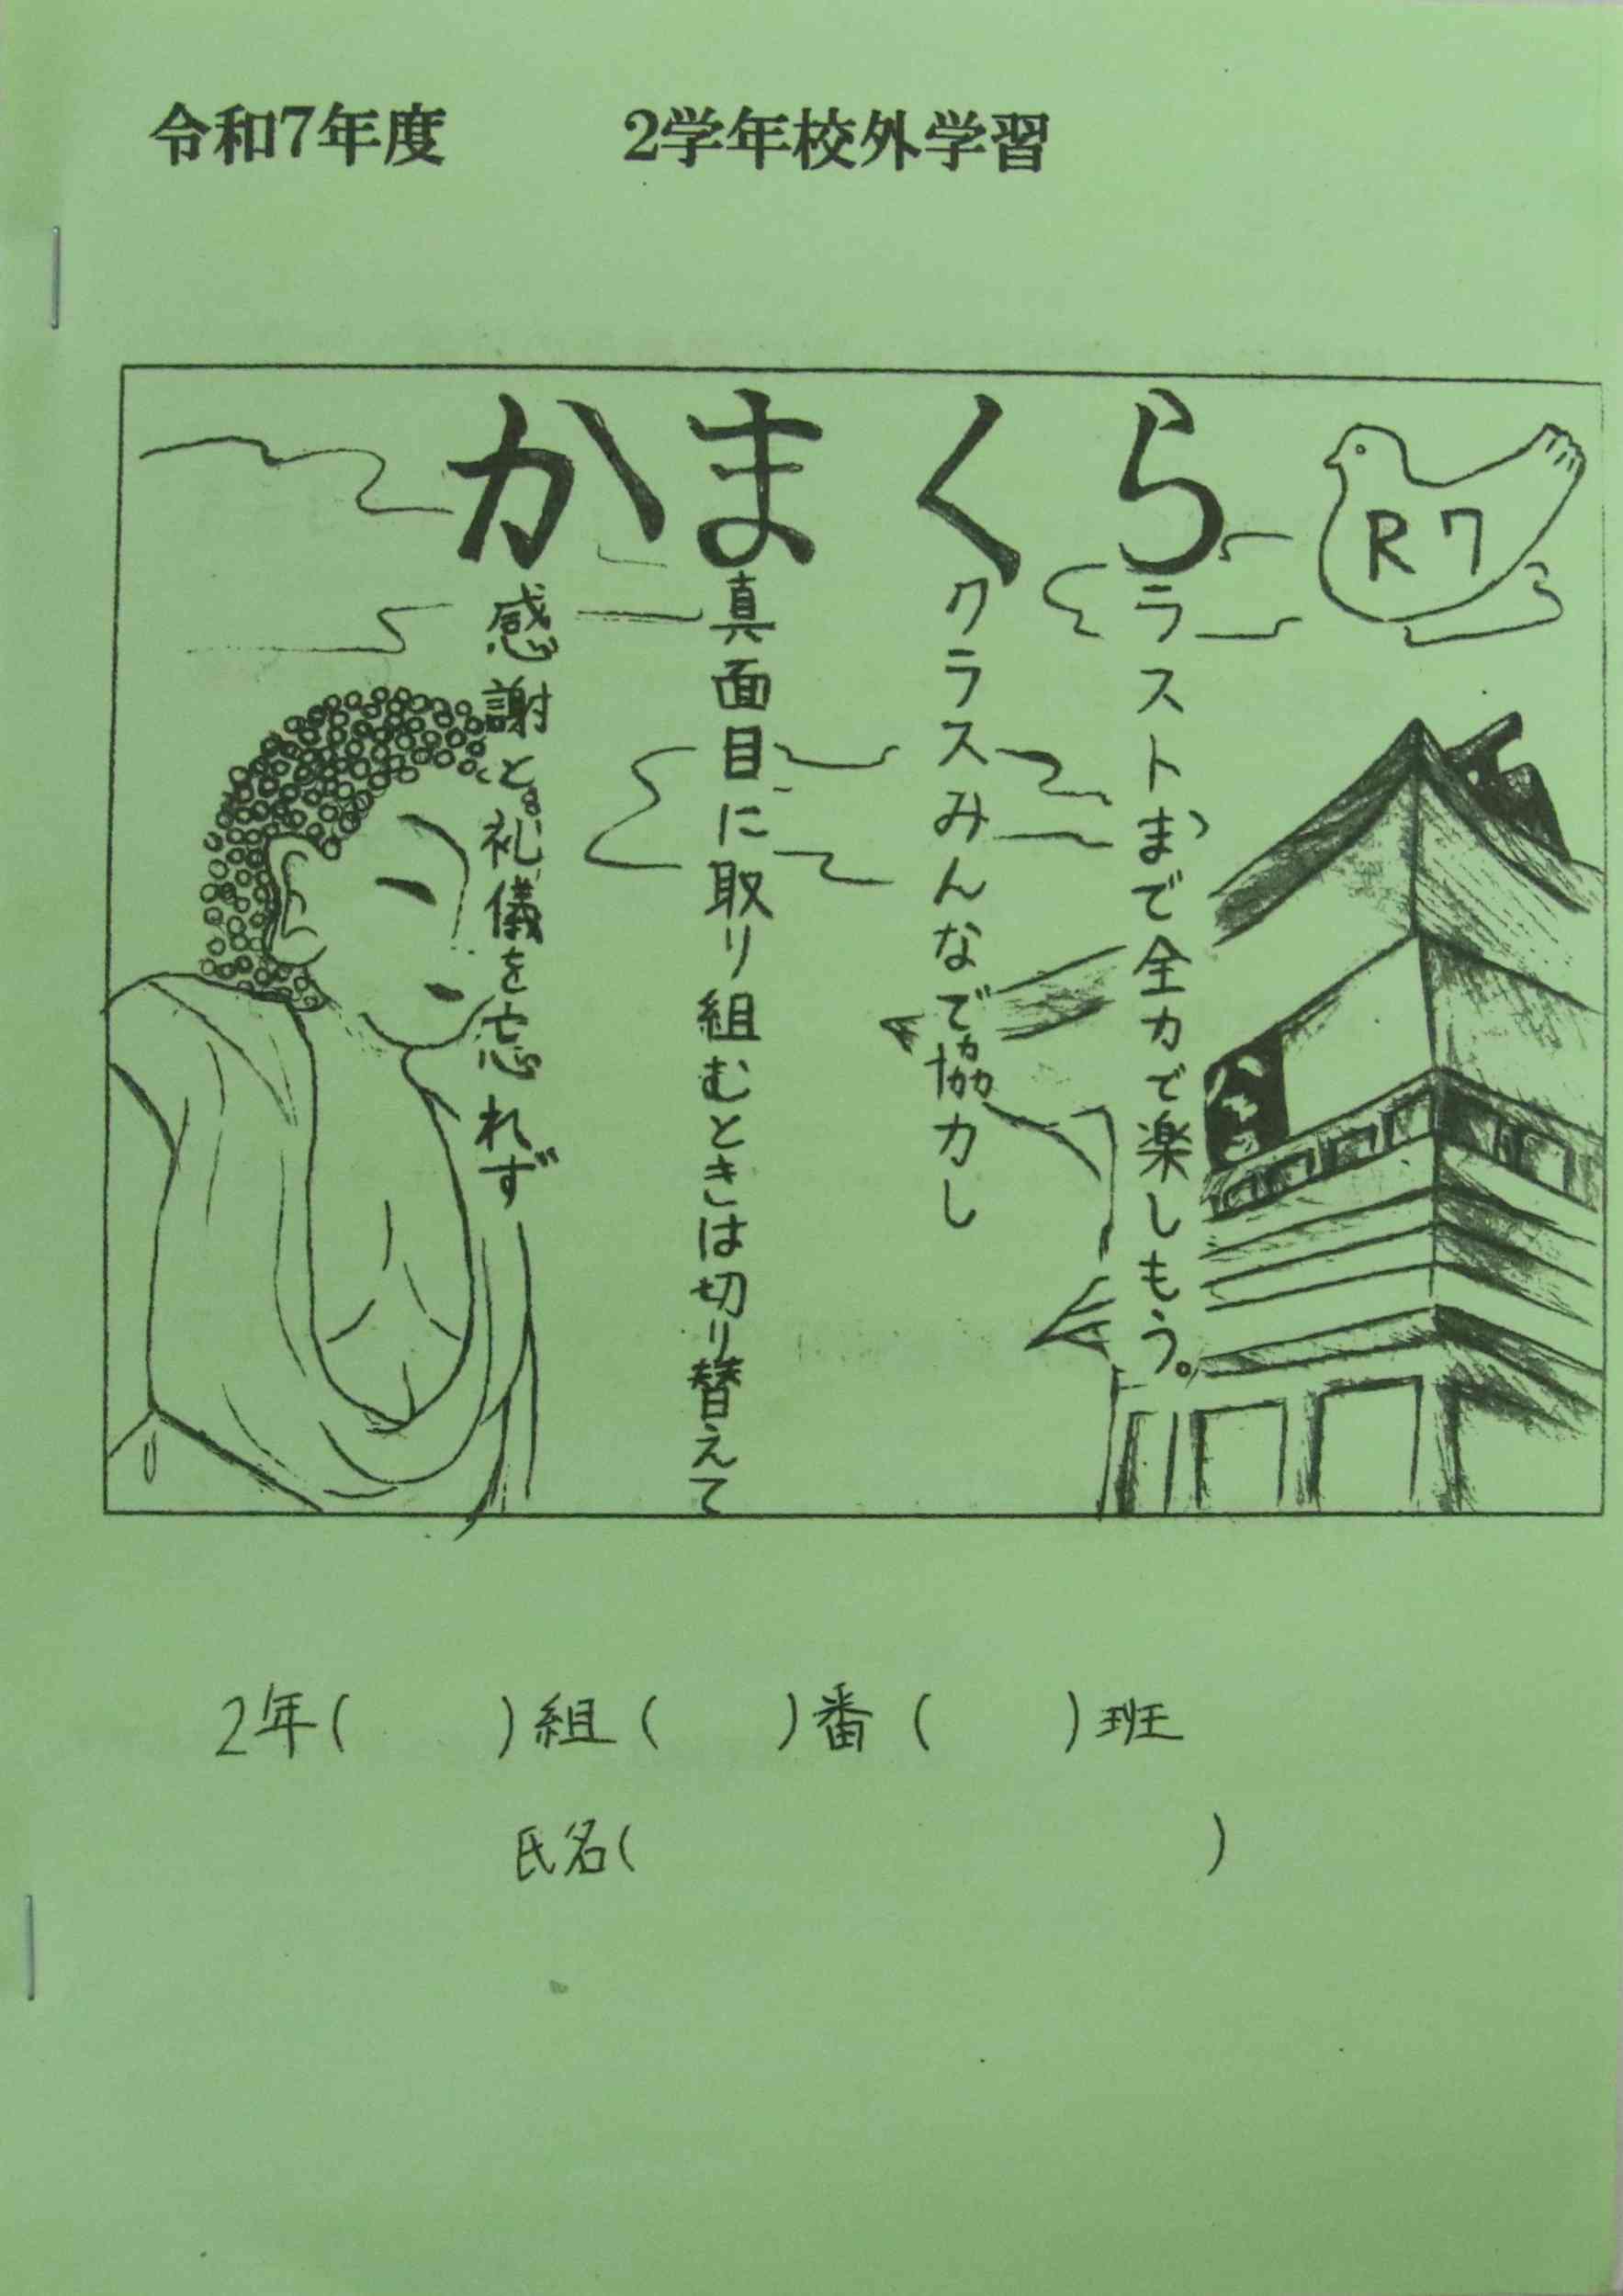 令和7年度 2学年校外学習
かまくら
R7
感謝と礼儀を忘れず
真面目に取り組むときは切り替えて
クラスみんなで協力し
ラストまで全力で楽しもう。
2年( )組( )番( )班
氏名( )